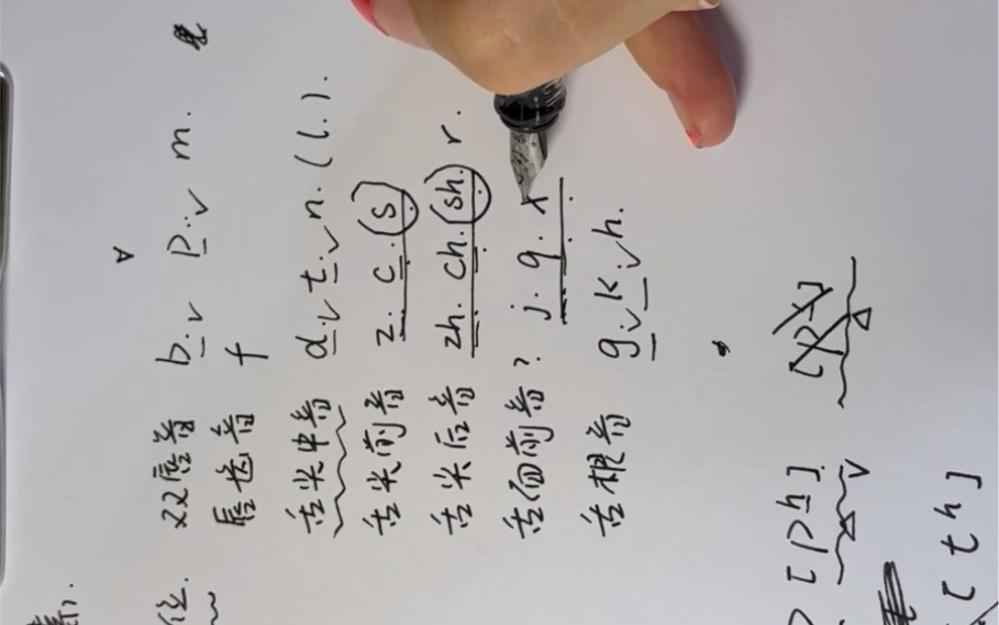 位.
双唇音 b. p. m.
唇齿音 f
舌尖中音 d. t. n. (l.).
舌尖前音 z. c. (s)
舌尖后音 zh. ch. (sh). r.
舌面前音? j. q. x
舌根音 g. k. h.
[ph] [p]
[th]